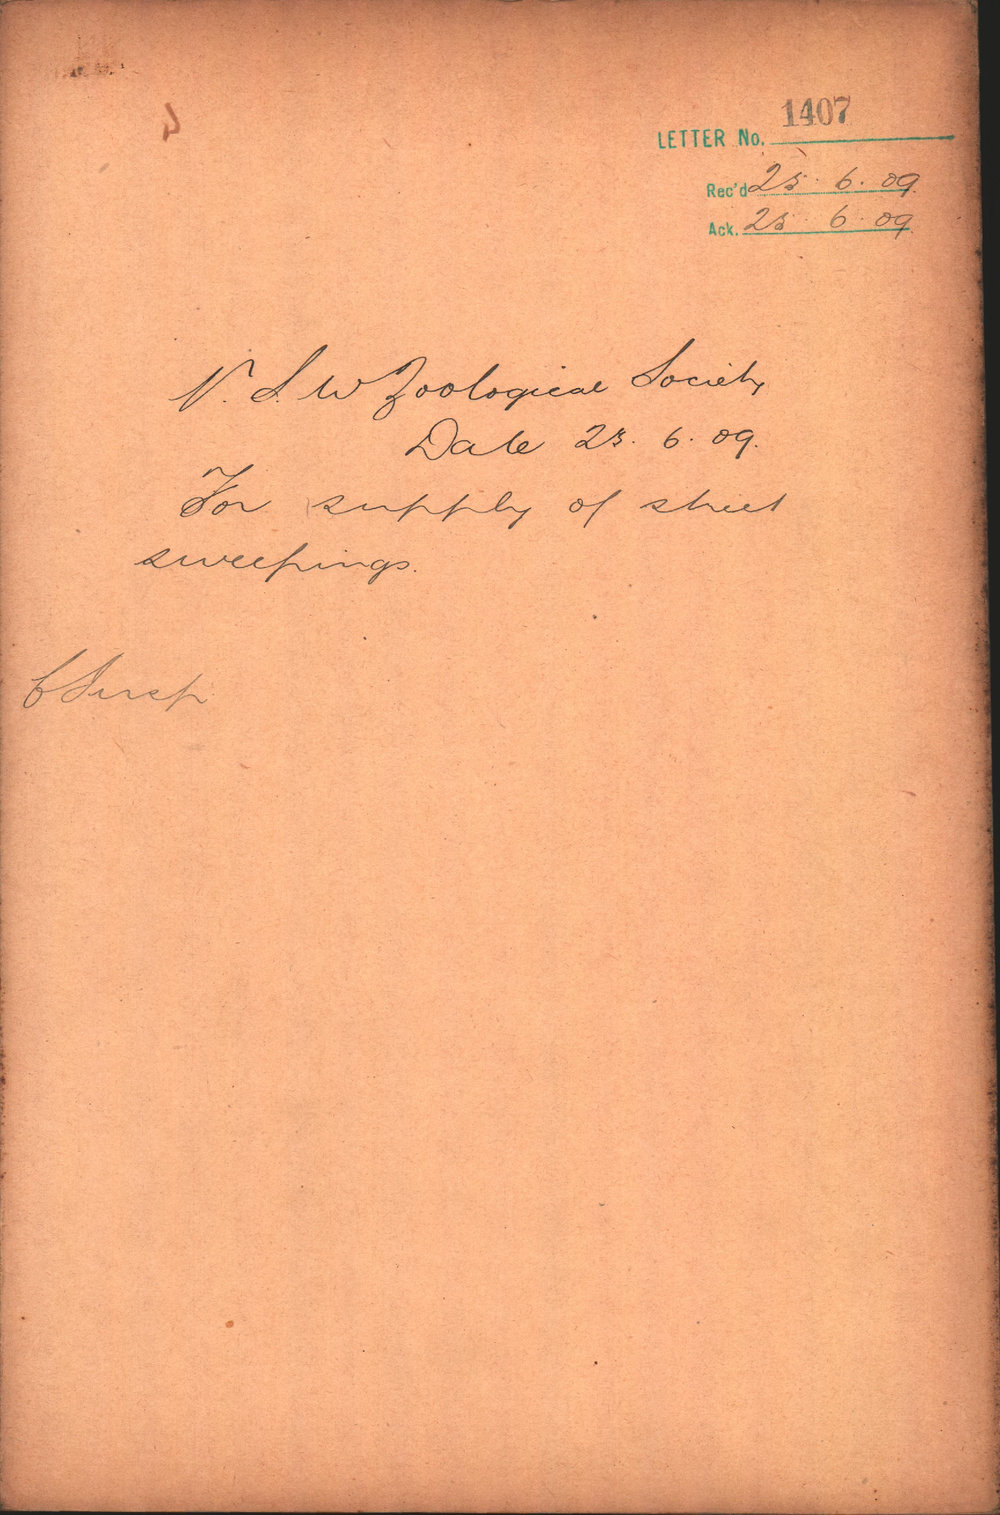 1407
LETTER No.
Rec'd 25. 6. 09.
Ack. 25. 6. 09.
N. S. W Zoological Society
Date 23. 6. 09.
For supply of street
sweepings.
C Insp